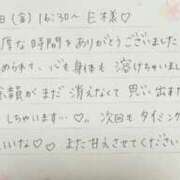 日(金) 16:30〜 E木様♡
度な時間をありがとうございました
められて、心も身体も 溶けちゃいまし
笑顔がまだ 消えなくて 思い出すた
しちゃいます…♡。 次回も タイミン
いいな♡ また甘えさせてください